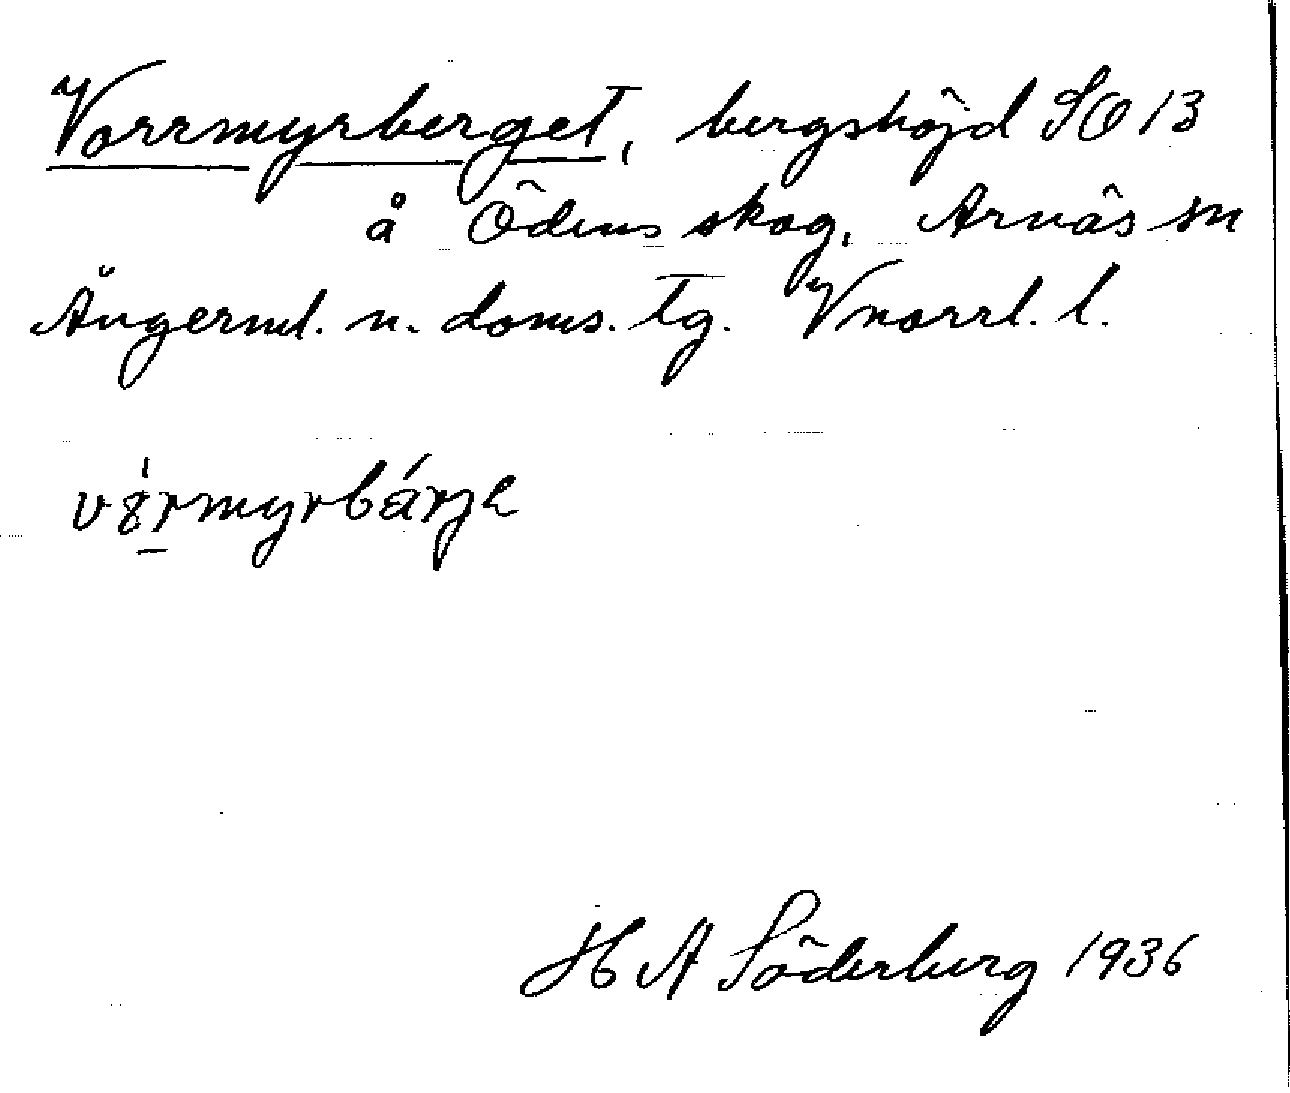 Vorrmyrberget, bergshöjd SO 13
å Ödens skog, Arnäs sn
Ångerml. n. doms. tg. Vnorrl. l.
v8rmyrbárje
H A Söderberg 1936